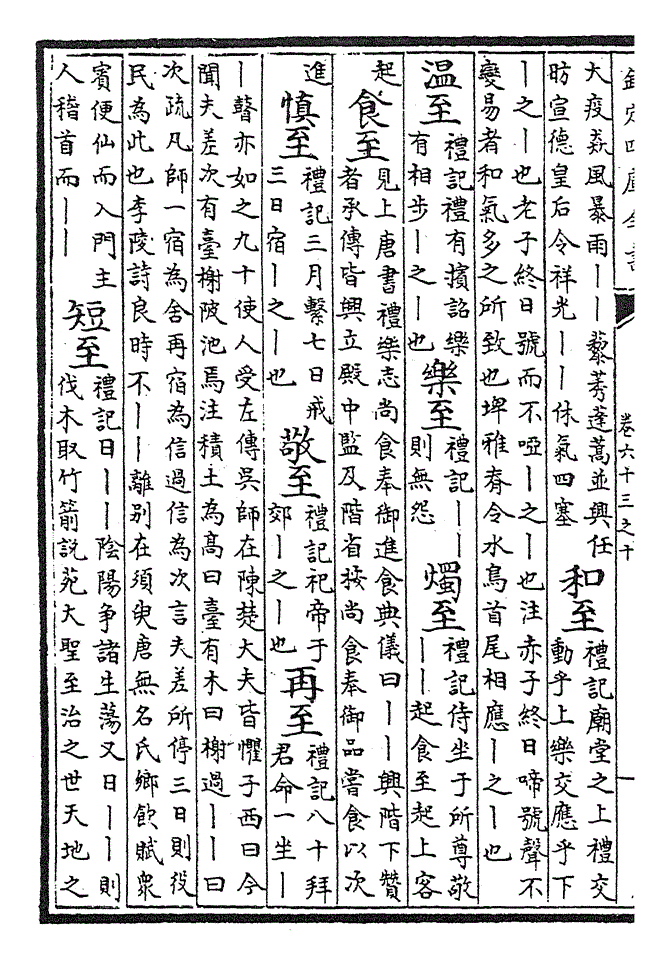 欽定四庫全書
卷六十三之十
大疫猋風暴雨丨丨藜莠蓬蒿並興任
昉宣德皇后令祥光丨丨休氣四塞
和至
禮記廟堂之上禮交
動乎上樂交應乎下
丨之丨也老子終日號而不啞丨之丨也注赤子終日啼號聲不
變易者和氣多之所致也埤雅脊令水鳥首尾相應丨之丨也
温至
禮記禮有擯詔樂
有相步丨之丨也
樂至
禮記丨丨
則無怨
燭至
禮記侍坐于所尊敬
丨丨起食至起上客
起
食至
見上唐書禮樂志尚食奉御進食典儀曰丨丨興階下贊
者承傳皆興立殿中監及階省按尚食奉御品嘗食以次
進
慎至
禮記三月繫七日戒
三日宿丨之丨也
敬至
禮記祀帝于
郊丨之丨也
再至
禮記八十拜
君命一坐丨
丨瞽亦如之九十使人受左傳吳師在陳楚大夫皆懼子西曰今
聞夫差次有臺榭陂池焉注積土為髙曰臺有木曰榭過丨丨曰
次疏凡師一宿為舍再宿為信過信為次言夫差所停三日則役
民為此也李陵詩良時不丨丨離别在須臾唐無名氏鄉飲賦衆
賓便仙而入門主
人稽首而丨丨
短至
禮記日丨丨陰陽争諸生蕩又日丨丨則
伐木取竹箭説苑大聖至治之世天地之